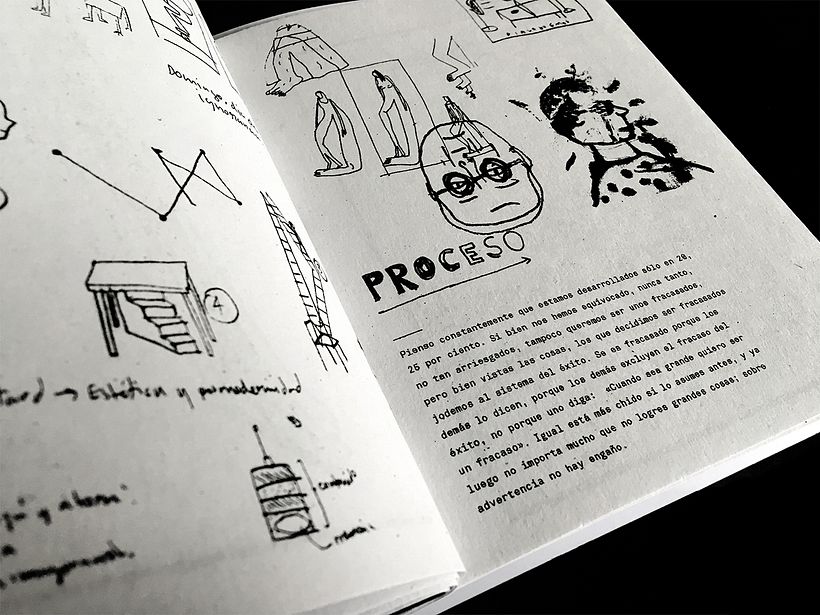 Domingo, día
4
Estética y posmodernidad
PROCESO
Pienso constantemente que estamos desarrollados sólo en 20,
25 por ciento. Si bien nos hemos equivocado, nunca tanto,
no tan arriesgados, tampoco queremos ser unos fracasados,
pero bien vistas las cosas, los que decidimos ser fracasados
jodemos al sistema del éxito. Se es fracasado porque los
demás lo dicen, porque los demás excluyen el fracaso del
éxito, no porque uno diga: «Cuando sea grande quiero ser
un fracaso». Igual está más chido si lo asumes antes, y ya
luego no importa mucho que no logres grandes cosas; sobre
advertencia no hay engaño.